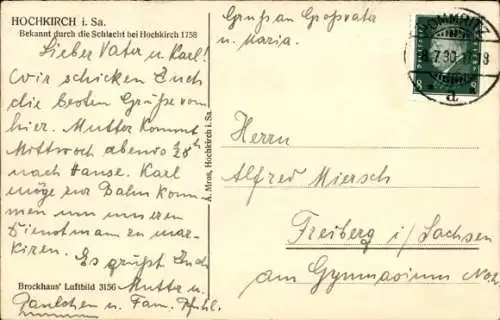 HOCHKIRCH i. Sa.
Bekannt durch die Schlacht bei Hochkirch 1758
Lieber Vater u. Karl!
Wir schicken Euch
die besten Grüsse vom
hier. Mutter kommt
Mittwoch abends
nach Hause. Karl
möge zur Bahn kom-
men um unseren
Dienstmann zu mar-
kieren. Es grüßt Euch
Mutter u.
Paulchen u. Fam.
Brockhaus' Luftbild 3156
A. Mros, Hochkirch i. Sa.
Gruss an Grossvater
u. Maria.
7.30
8
a
Herrn
Alfred Miersch
Freiberg i/Sachsen
am Gymnasium No